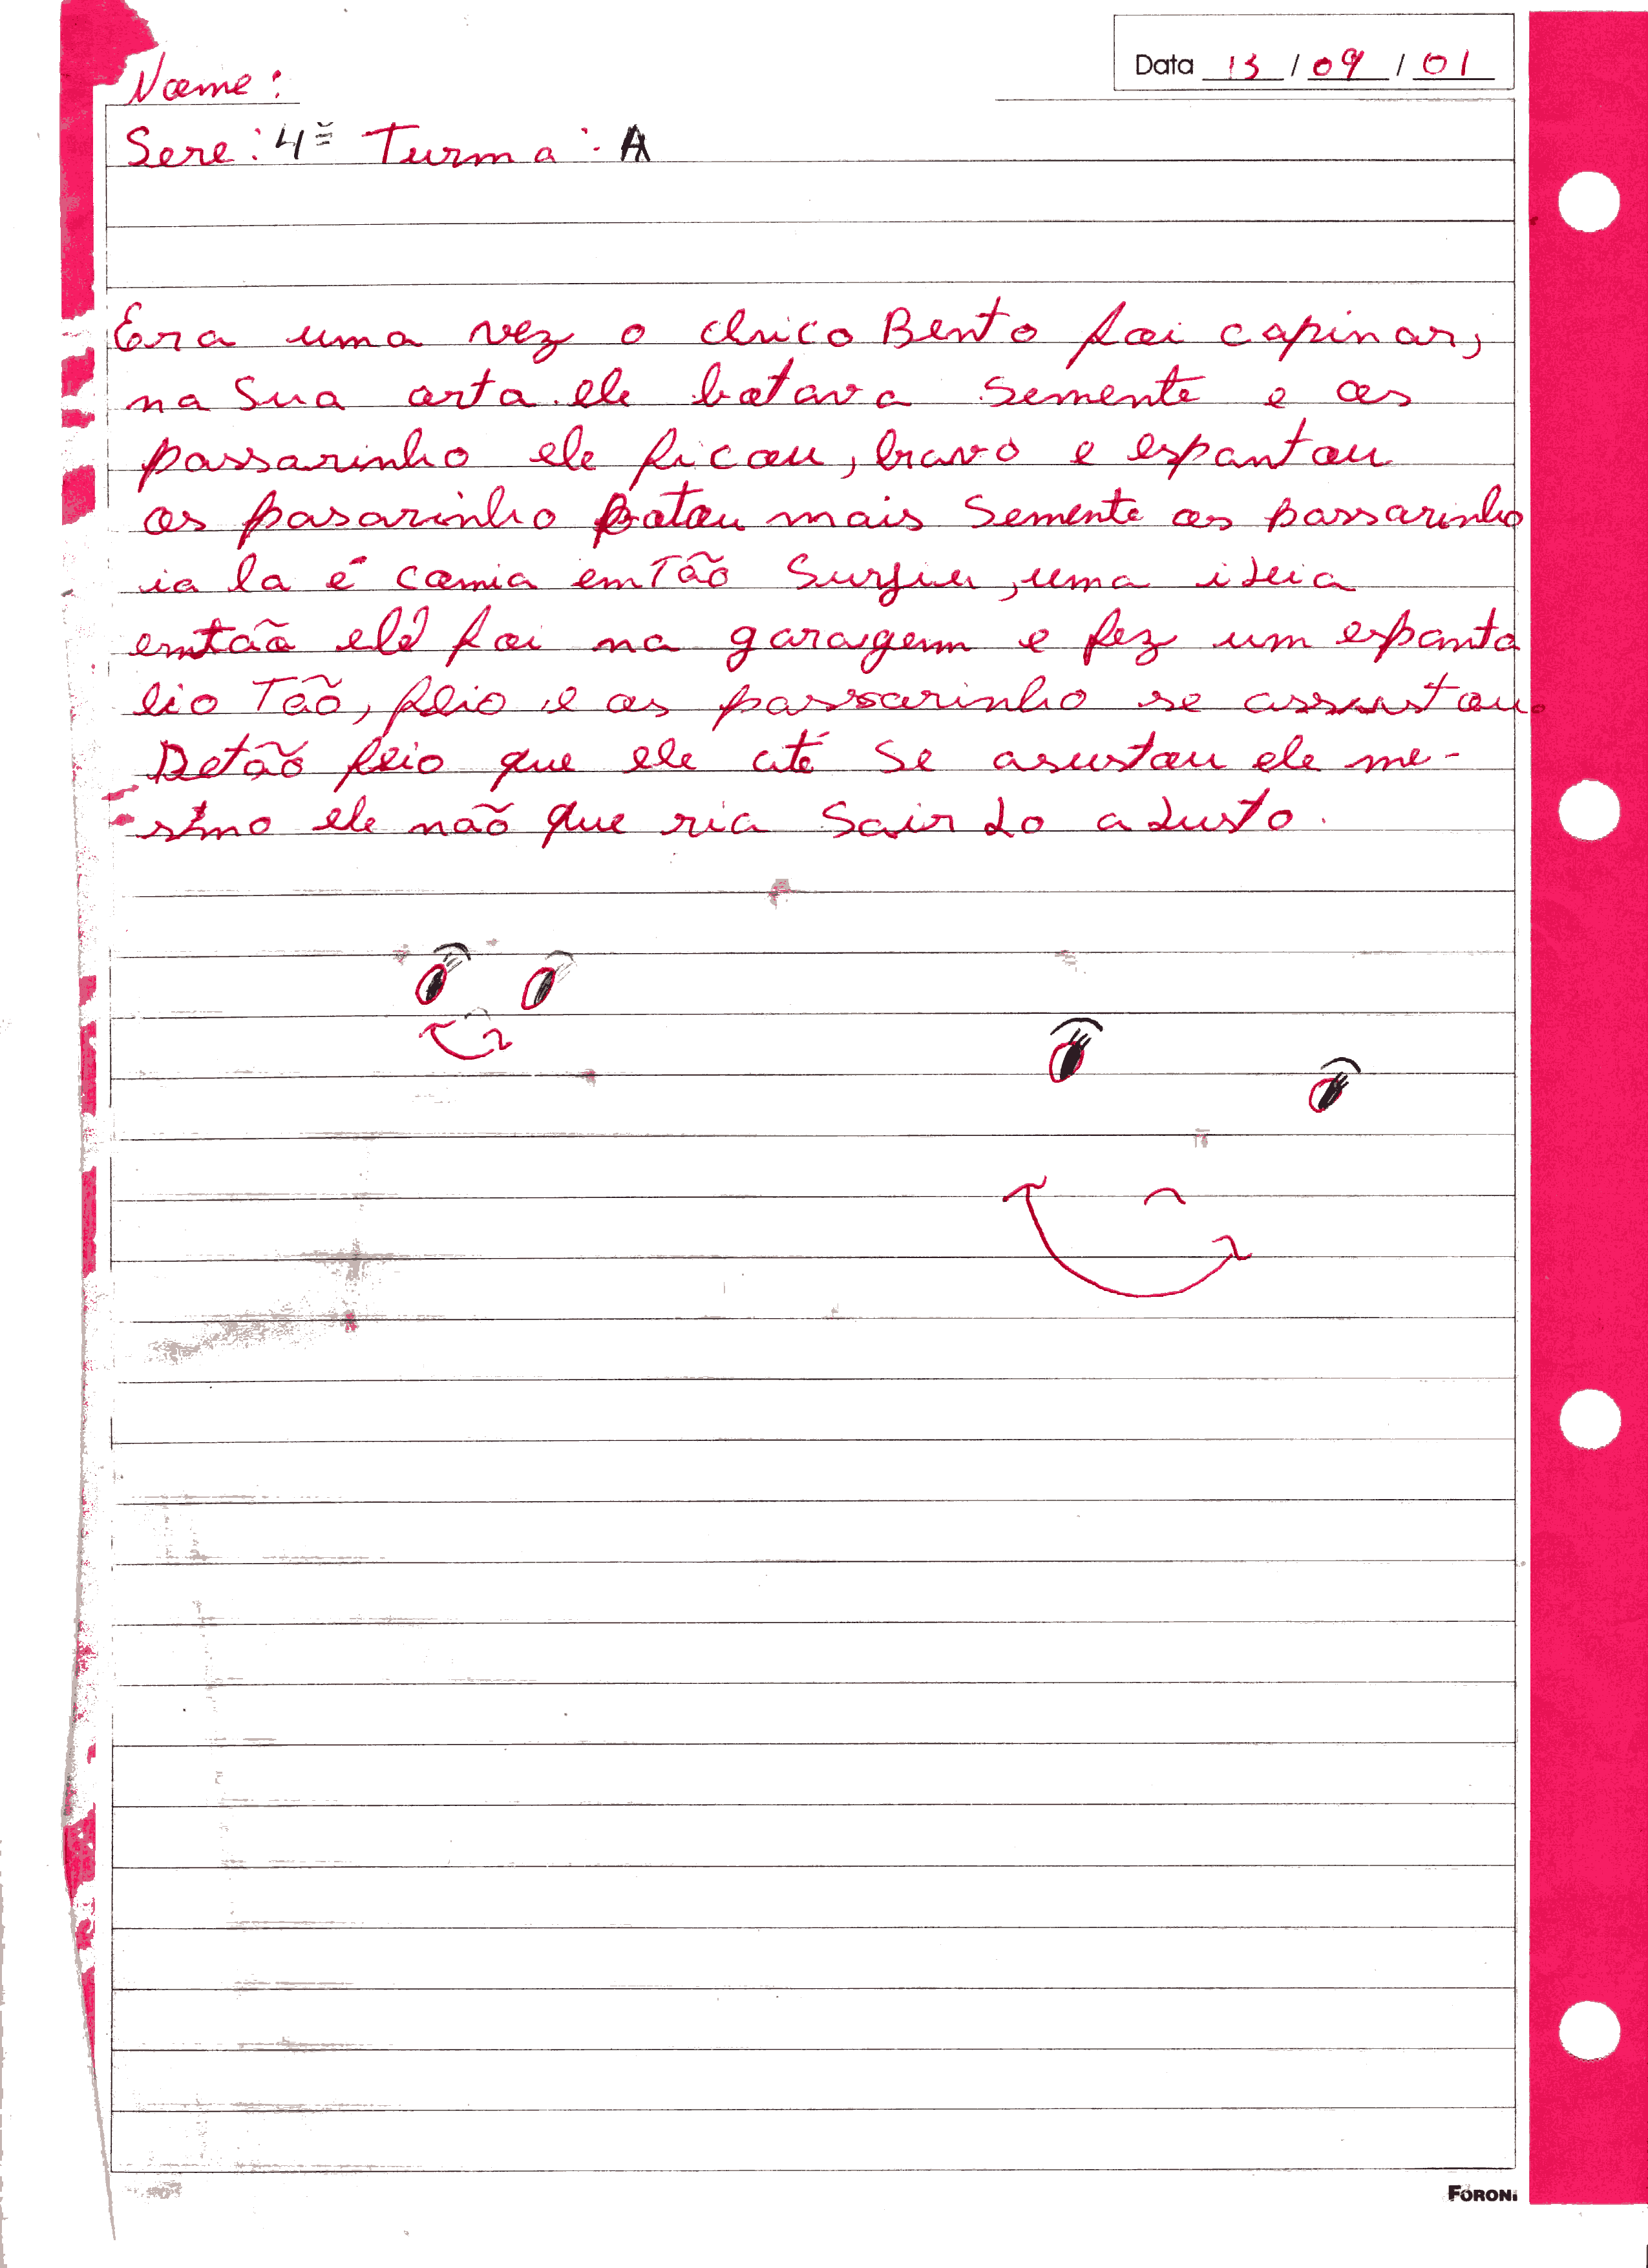 Data 13 / 09 / 01
Nome:
Sere: 4ª Turma: A
Era uma vez o chico Bento foi capinar,
na sua orta. ele botava semente e os
passarinho ele ficou, bravo e espantou
os pasarinho botou mais semente os passarinho
ia la é comia emtão surgiu, uma ideia
emtão ele foi na garagem e fez um espanta
lio tão, feio e os passarinho se assustou.
Detão feio que ele até se asustou ele me-
smo ele não que ria sair do adusto.
FORONI